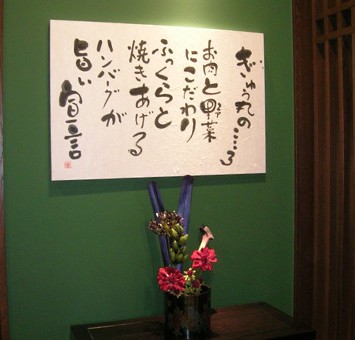 ぎゅう丸のこころ
お肉と野菜
にこだわり
ふっくらと
焼きあげる
ハンバーグが
旨い宣言